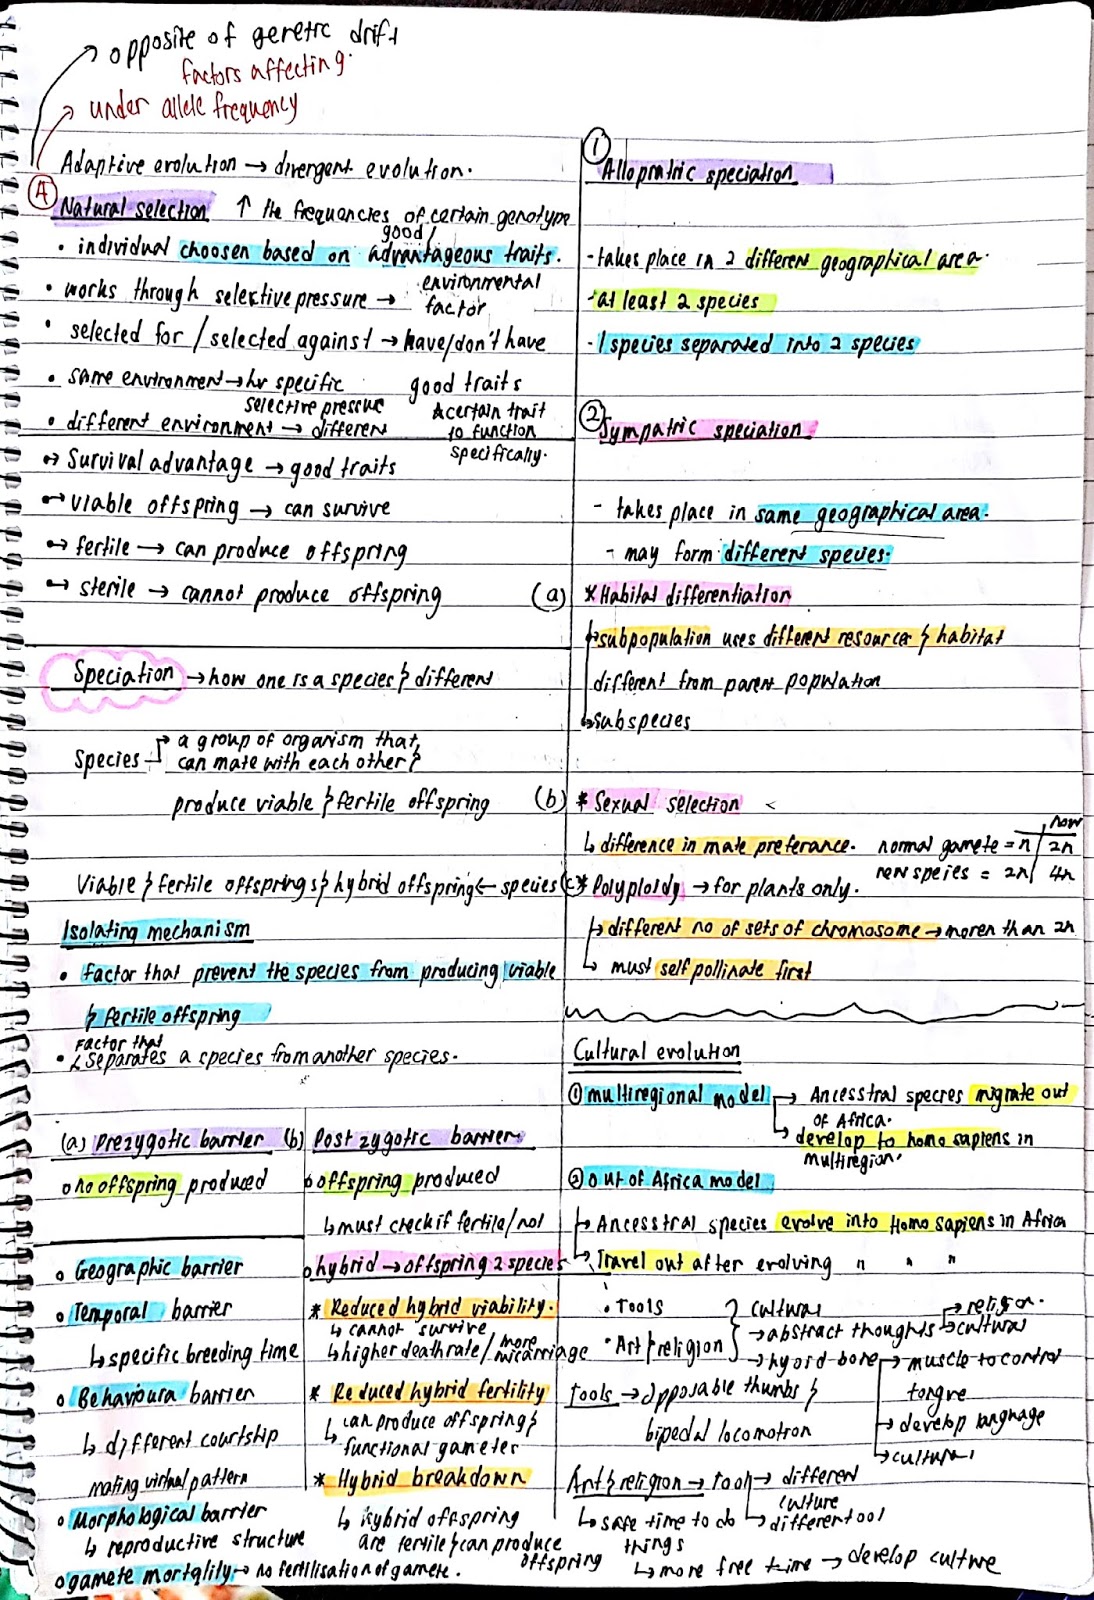 opposite of genetic drift
factors affecting
under allele frequency
Adaptive evolution → divergent evolution.
Ⓐ
Natural selection ↑ the frequencies of certain genotype
good/
• individual choosen based on advantageous traits.
• works through selective pressure → environmental
factor
• selected for / selected against → have/don't have
good traits
• same environment → hv specific
selective pressure
• different environment → different
* certain trait
to function
specifically.
↔ Survival advantage → good traits
↔ viable offspring → can survive
↔ fertile → can produce offspring
↔ sterile → cannot produce offspring
Speciation → how one is a species & different
Species → a group of organism that
can mate with each other &
produce viable & fertile offspring
Viable & fertile offsprings & hybrid offspring ← species
Isolating mechanism
• factor that prevent the species from producing viable
& fertile offspring
factor that
• ↳ separates a species from another species.
(a) Prezygotic barrier
o no offspring produced
o Geographic barrier
o Temporal barrier
↳ specific breeding time
o Behavioura barrier
↳ different courtship
mating virtual pattern
o Morphological barrier
↳ reproductive structure
o gamete mortality → no fertilisation of gamete.
(b) Post zygotic barrier
o offspring produced
↳ must check if fertile/not
o hybrid → offspring 2 species
* Reduced hybrid viability.
↳ cannot survive
↳ higher death rate/more miscarriage
* Reduced hybrid fertility
↳ can produce offspring &
functional gameter
* Hybrid breakdown
↳ hybrid offspring
are fertile & can produce
offspring
① Allopratric speciation
- takes place in 2 different geographical area.
- at least 2 species
- 1 species separated into 2 species
② Sympatric speciation
- takes place in same geographical area.
- may form different species.
(a) * Habitat differentiation
↳ subpopulation uses different resources & habitat
different from parent population
↳ subspecies
(b) * Sexual selection <
↳ difference in mate preferance.
now
normal gamete = n | 2n
new speies = 2n | 4n
(c) * Polyploidy → for plants only.
↳ different no of sets of chromosome → moren than 2n
↳ must self pollinate first
Cultural evolution
① multiregional model → Ancesstral species migrate out
of Africa.
→ develop to homo sapiens in
multiregion.
② out of Africa model
↳ Ancesstral species evolve into Homo sapiens in Africa
↳ Travel out after evolving " " "
• Tools
• Art & religion } cultural
→ abstract thoughts → religion.
→ cultural
→ hyoid bone → muscle to control
tongue
→ develop language
→ cultural
Tools → opposable thumbs &
bipedal locomotion
Art & religion → tool → different
culture
↳ different tool
↳ safe time to do
things
↳ more free time → develop culture